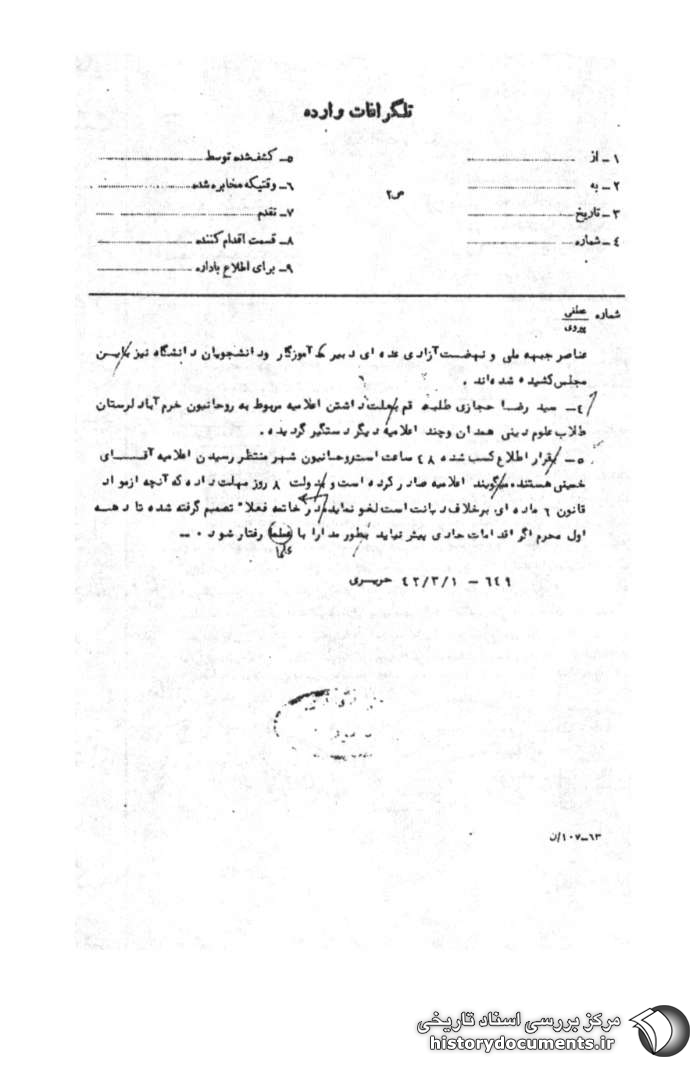 تلگرافات وارده
۱ـ از
۲ـ به
۳ـ تاریخ
۴ـ شماره
ص۲
۵ـ کشف‌شده توسط
۶ـ وقتیکه مخابره شده
۷ـ تقدم
۸ـ قسمت اقدام کننده
۹ـ برای اطلاع باداره
شماره عطفی
پیروی
عناصر جبهه ملی و نهضت آزادی عده ای دبیر و آموزگار و دانشجویان دانشگاه نیز باین
مجلس کشیده شده‌اند .
٤ـ سید رضا حجازی طلبه قم بعلت داشتن اعلامیه مربوط به روحانیون خرم آباد لرستان
طلاب علوم دینی همدان و چند اعلامیه دیگر دستگیر گردیده .
۵ـ بقرار اطلاع کسب شده ٤٨ ساعت است روحانیون شهر منتظر رسیدن اعلامیه آقـــای
خمینی هستند میگویند اعلامیه صادر کرده است و بدولت ٨ روز مهلت داده که آنچه از مواد
قانون ٦ ماده ای برخلاف دیانت است لغو نماید در خاتمه فعلا" تصمیم گرفته شده تا دهـه
اول محرم اگر اقدامات حادی پیش نیاید بطور مدارا با رفتار شود ۰ ــ
٦٤٩ ــ ٤٢/٣/١ حریری
۶۳ــ۱۰۷/ن
مرکز بررسی اسناد تاریخی
historydocuments.ir